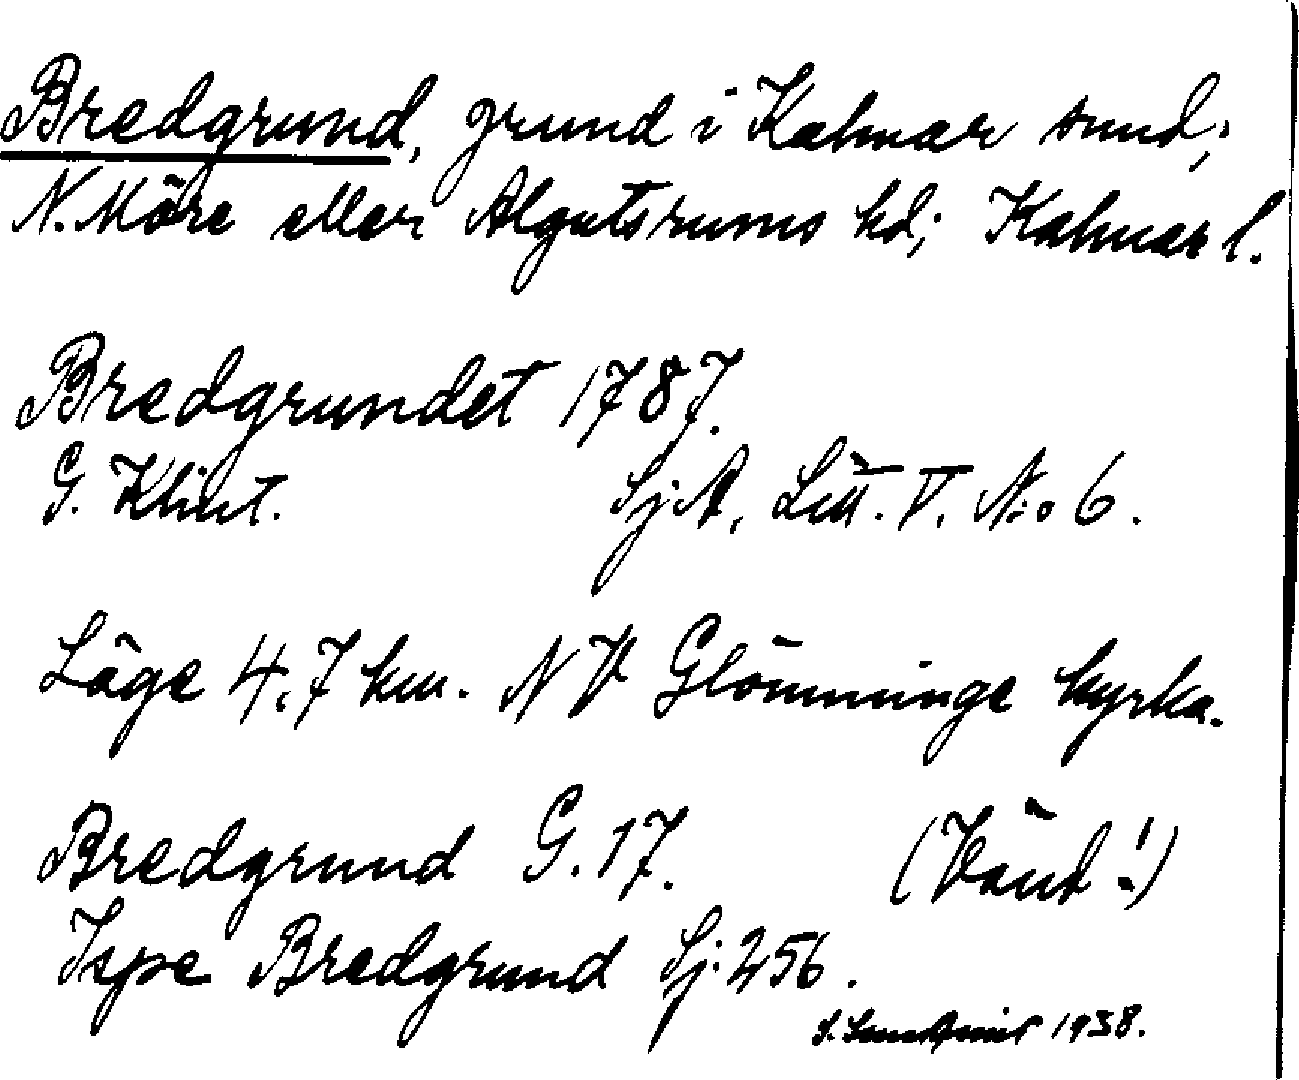 Bredgrund, grund i Kalmar sund;
N. Möre eller Algutsrums hd; Kalmar l.
Bredgrundet 1787.
G. Klint. SjA, Litt. V. N:o 6.
Läge 4,7 km. NV Glömminge kyrka.
Bredgrund G. 17. (Vänd!)
Ispe Bredgrund Sj: 256.
S. 1938.